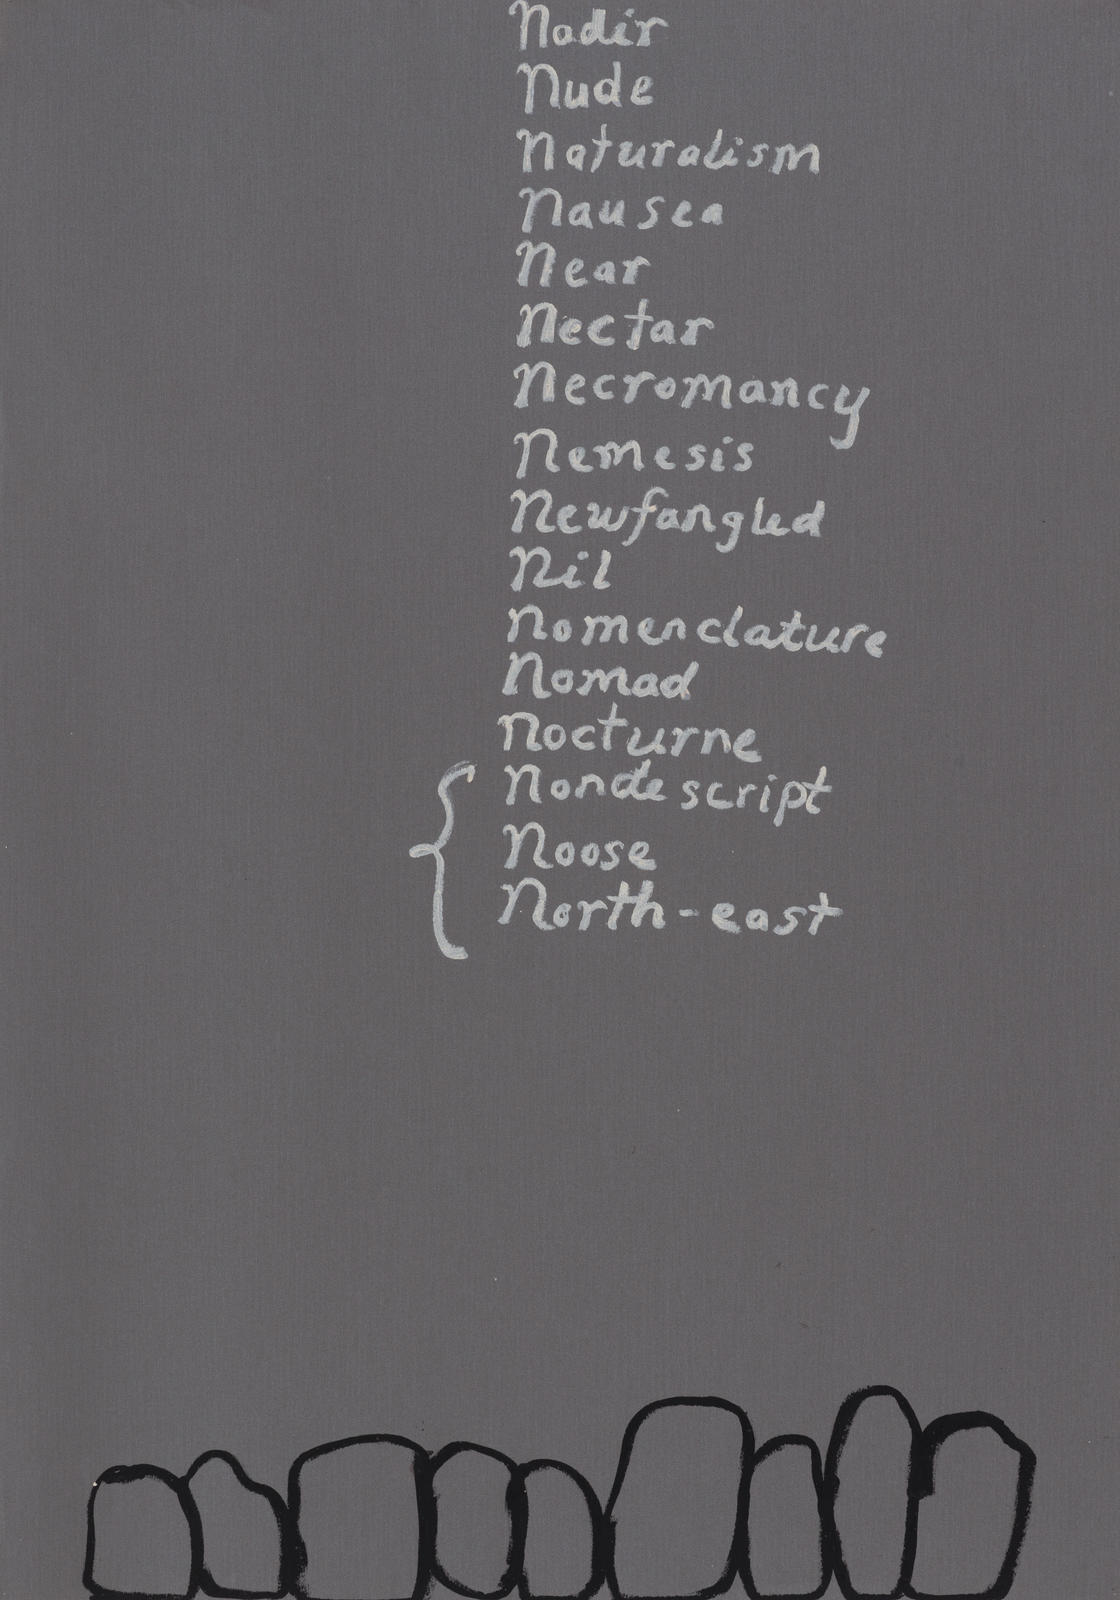 Nadir
Nude
Naturalism
Nausea
Near
Nectar
Necromancy
Nemesis
Newfangled
Nil
Nomenclature
Nomad
Nocturne
Nondescript
Noose
North-east